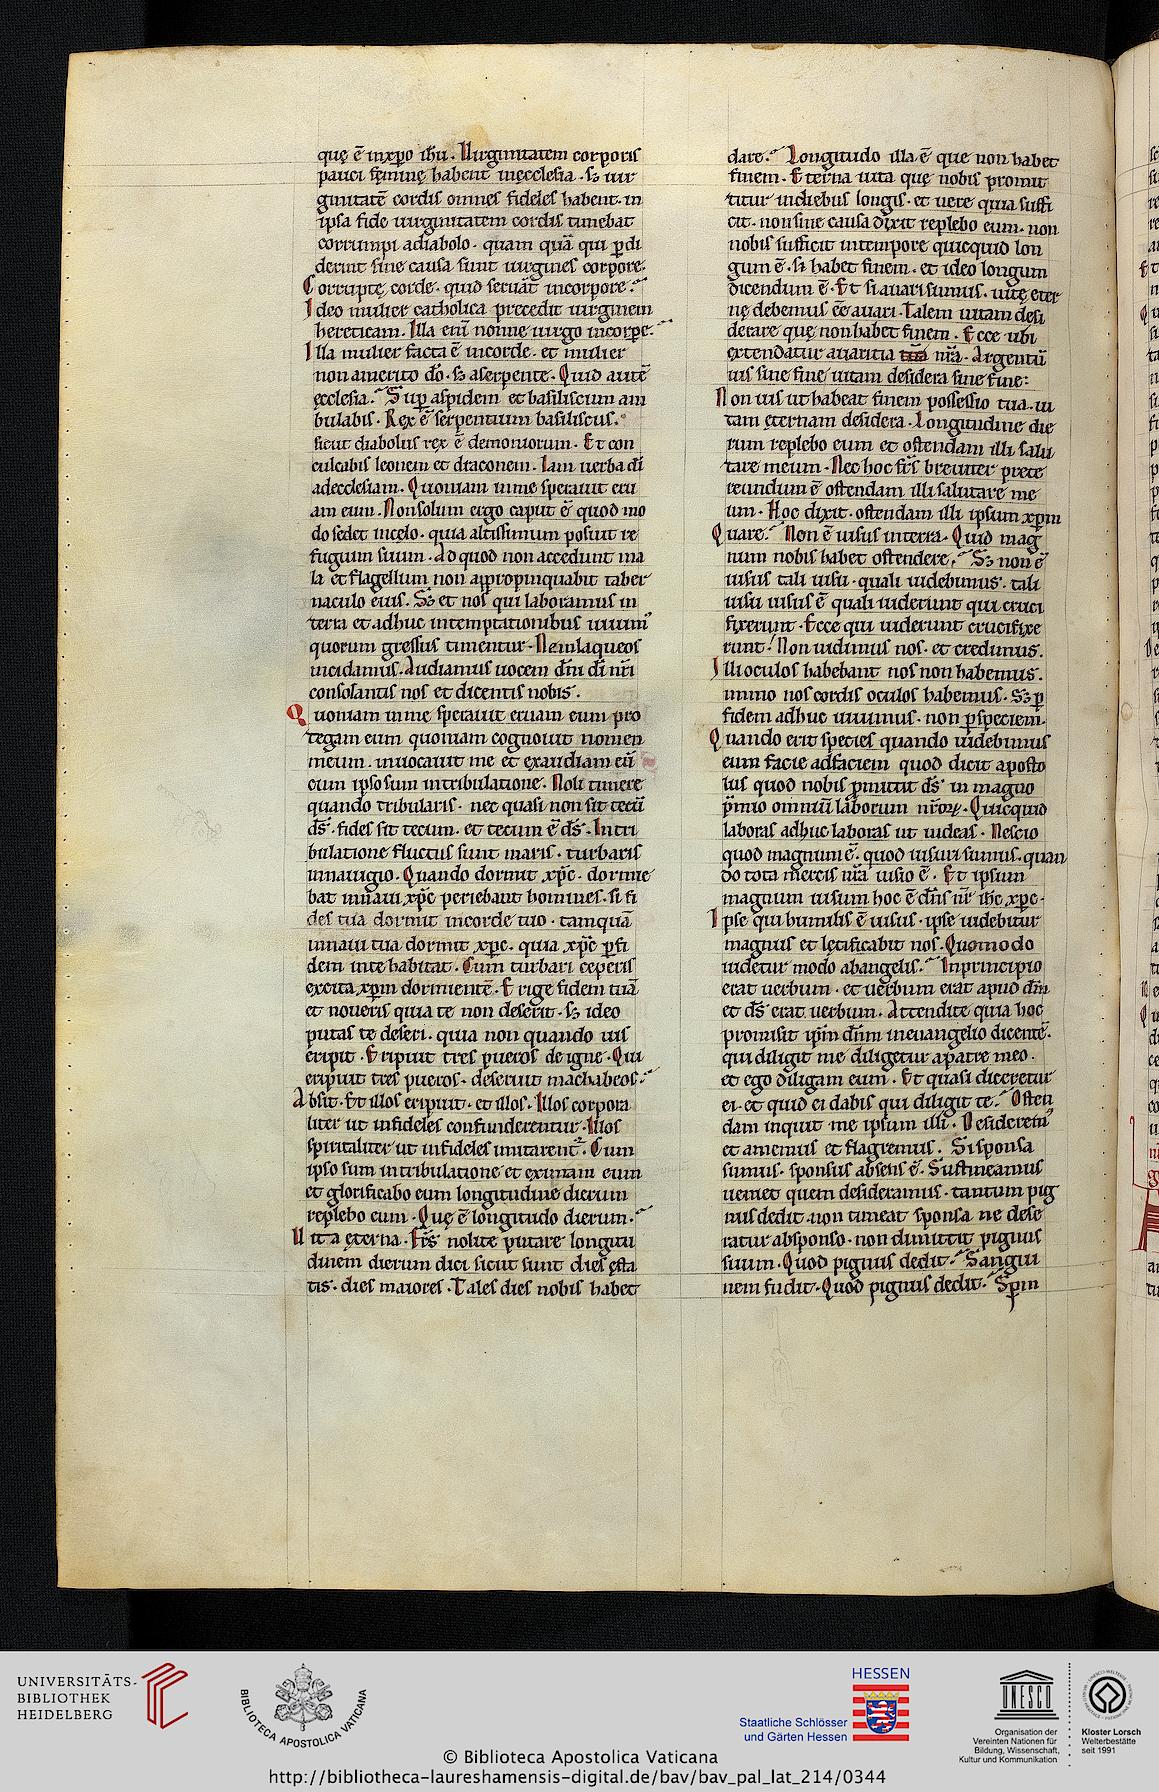 quę ē inxp̄o ih̄u. Virginitatem corporis
pauci feminę habent inecclesia. sꝫ uir
ginitatē cordis omnes fideles habent. in
ipsa fide uirginitatem cordis timebat
corrumpi adiabolo. quam quā qui ꝑdi
derint sine causa sunt uirgines corpore.
Corruptę corde. quid seruāt incorpore.
Ideo mulier catholica precedit virginem
hereticam. Illa eni nonne uirgo incorpe.
Illa mulier facta ē incorde. et mulier
non amerito dō. sꝫ aserpente. Quid autē
ęcclesia. Suꝑ aspidem et basiliscum am
bulabis. Rex ē serpentium basiliscus.
sicut diabolus rex ē demoniorum. Et con
culcabis leonem et draconem. Iam uerba dī
adecclesiam. Quoniam inme sperauit eru
am eum. Nonsolum ergo caput ē quod mo
do sedet incelo. quia altissimum posuit re
fugium suum. Ad quod non accedunt ma
la et flagellum non appropinquabit taber
naculo eius. Sꝫ et nos qui laboramus in
terra et adhuc intemptationibus uiuim᾽
quorum gressus timentur. Neinlaqueos
incidamus. Audiamus uocem dn̄i dī nr̄i
consolantis nos et dicentis nobis.
Quoniam inme sperauit eruam eum pro
tegam eum quoniam cognouit nomen
meum. inuocauit me et exaudiam eū
cum ipso sum intribulatione. Noli timere
quando tribularis. nec quasi non sit tecū
ds̄. fides sit tecum. et tecum ē ds̄. Intri
bulatione fluctus sunt maris. turbaris
innauigio. Quando dormit xp̄c. dormie
bat innaui xp̄c periebant homines. si fi
des tua dormit incorde tuo. tamquā
innaui tua dormit xp̄c. quia xp̄c ꝑfi
dem inte habitat. Cum turbari ceperis
excita xp̄m dormientē. Erige fidem tuā
et noueris quia te non deserit. sꝫ ideo
putas te deseri. quia non quando uis
eripit. Eripuit tres pueros de igne. Qui
eripuit tres pueros. deseruit machabeos.
Absit. Et illos eripuit. et illos. Illos corpora
liter ut infideles confunderentur. Illos
spiritaliter ut infideles imitarent᷑. Cum
ipso sum intribulatione et eximam eum
et glorificabo eum longitudine dierum
replebo eum. Quę ē longitudo dierum.
Uita ęterna. Frs̄ nolite putare longitu
dinem dierum dici sicut sunt dies ęsta
tis. dies maiores. Tales dies nobis habet
dare. Longitudo illa ē que non habet
finem. Eterna uita quę nobis promit
titur indiebus longis. et uere quia suffi
cit. non sine causa dixit replebo eum. non
nobis sufficit intempore quicquid lon
gum ē. si habet finem. et ideo longum
dicendum ē. Et si auari sumus. uitę eter
nę debemus eē auari. Talem uitam desi
derare quę non habet finem. Ecce ubi
extendatur auaritia tua nr̄a. Argentū
uis sine fine uitam desidera sine fine:
Non uis ut habeat finem possessio tua. ui
tam ęternam desidera. Longitudine die
rum replebo eum et ostendam illi salu
tare meum. Nec hoc frs̄ breuiter prete
reundum ē ostendam illi salutare me
um. Hoc dixit. ostendam illi ipsum xp̄m
Quare. Non ē uisus interra. Quid mag
num nobis habet ostendere. Sꝫ non ē
uisus tali uisu. quali uidebimus. tali
uisu uisus ē quali uiderunt qui cruci
fixerunt. Ecce qui uiderunt crucifixe
runt. Non uidimus nos. et credimus.
Illi oculos habebant nos non habemus.
immo nos cordis oculos habemus. Sꝫ ꝑ
fidem adhuc uiuimus. non ꝑspeciem.
Quando erit species quando uidebimus
eum facie adfaciem quod dicit aposto
lus quod nobis promittit ds̄ in magno
p̄mio omniū laborum nr̄oꝝ. Quicquid
laboras adhuc laboras ut uideas. Nescio
quod magnum ē. quod uisuri sumus. quan
do tota mercis nr̄a uisio ē. Et ipsum
magnum uisum hoc ē dn̄s nr̄ ih̄c xp̄c.
Ipse qui humilis ē uisus. ipse uidebitur
magnus et lętificabit nos. Quomodo
uidetur modo abangelis. Inprincipio
erat uerbum. et uerbum erat apud dm̄
et ds̄ erat uerbum. Attendite quia hoc
promisit ip̄m dn̄m ineuangelio dicentē.
qui diligit me diligetur apatre meo.
et ego diligam eum. Et quasi diceretur
ei. et quid ei dabis qui diligit te. Osten
dam inquit me ipsum illi. Desiderem᾽
et amemus et flagremus. Si sponsa
sumus. sponsus absens ē. Sustineamus
ueniet quem desideramus. tantum pig
nus dedit. non timeat sponsa ne dese
ratur absponso. non dimittit pignus
suum. Quod pignus dedit. Sangui
nem fudit. Quod pignus dedit. Sp̄m
UNIVERSITÄTS-
BIBLIOTHEK
HEIDELBERG
BIBLIOTECA APOSTOLICA VATICANA
HESSEN
Staatliche Schlösser
und Gärten Hessen
UNESCO
Organisation der
Vereinten Nationen für
Bildung, Wissenschaft,
Kultur und Kommunikation
Kloster Lorsch
Welterbestätte
seit 1991
© Biblioteca Apostolica Vaticana
http://bibliotheca-laureshamensis-digital.de/bav/bav_pal_lat_214/0344